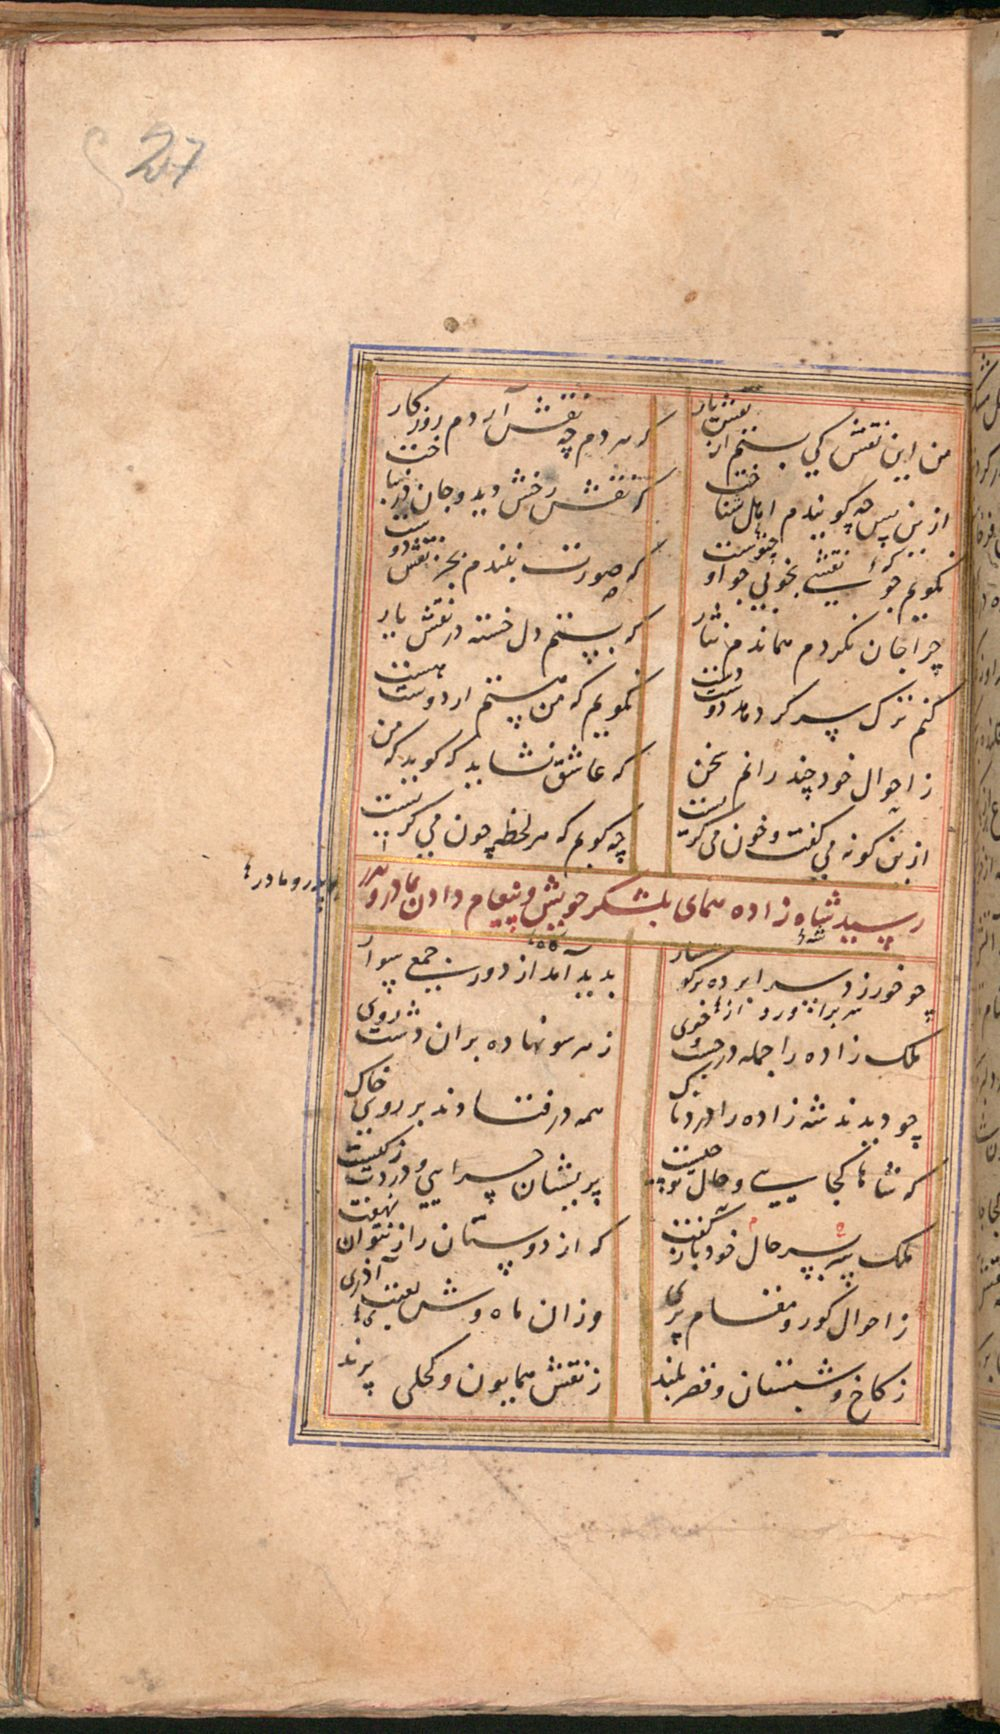 27
من این نقش کی بستم از نقش یار
که هر دم چه نقش آردم روزکار
ازین پس چه کویندم اهل شناخت
که نقش رخش دید و جان در نباخت
نکویم چو نقشی بخوبی چو اوست
که صورت نبندم بجز نقش دوست
چرا جان نکردم هماندم نثار
که بستم دل خسته در نقش یار
کنم ترک سر کر دهد دوست دست
نکویم که من هستم ار دوست هست
ز احوال خود چند رانم سخن
که عاشق نشاید که کوید که من
ازین کونه می کفت و خون می کریست
چه کویم که هر لحظه چون می کریست
رسید شاه زاده همای بلشکر خویش و پیغام دادن بمادر و پدر
پدر و مادر
چو خور زد سراپرده بر کوهسار
بدید آمد از دور جمعی سوار
ملک زاده را جمله در جست جوی
ز هر سو نهاده بران دشت روی
چو دیدند شه زاده را دردناک
همه در فتادند بر روی خاک
که شاها کجایی و حال تو چیست
پریشان چرایی و دردت ز کیست
ملک پیش سر حال خود باز کفت
که از دوستان راز نتوان نهفت
ز احوال کور و مقام پری
وزان ماه وش لعبت آذری
ز کاخ و شبستان و قصر بلند
ز نقش همایون و کحلی پرند